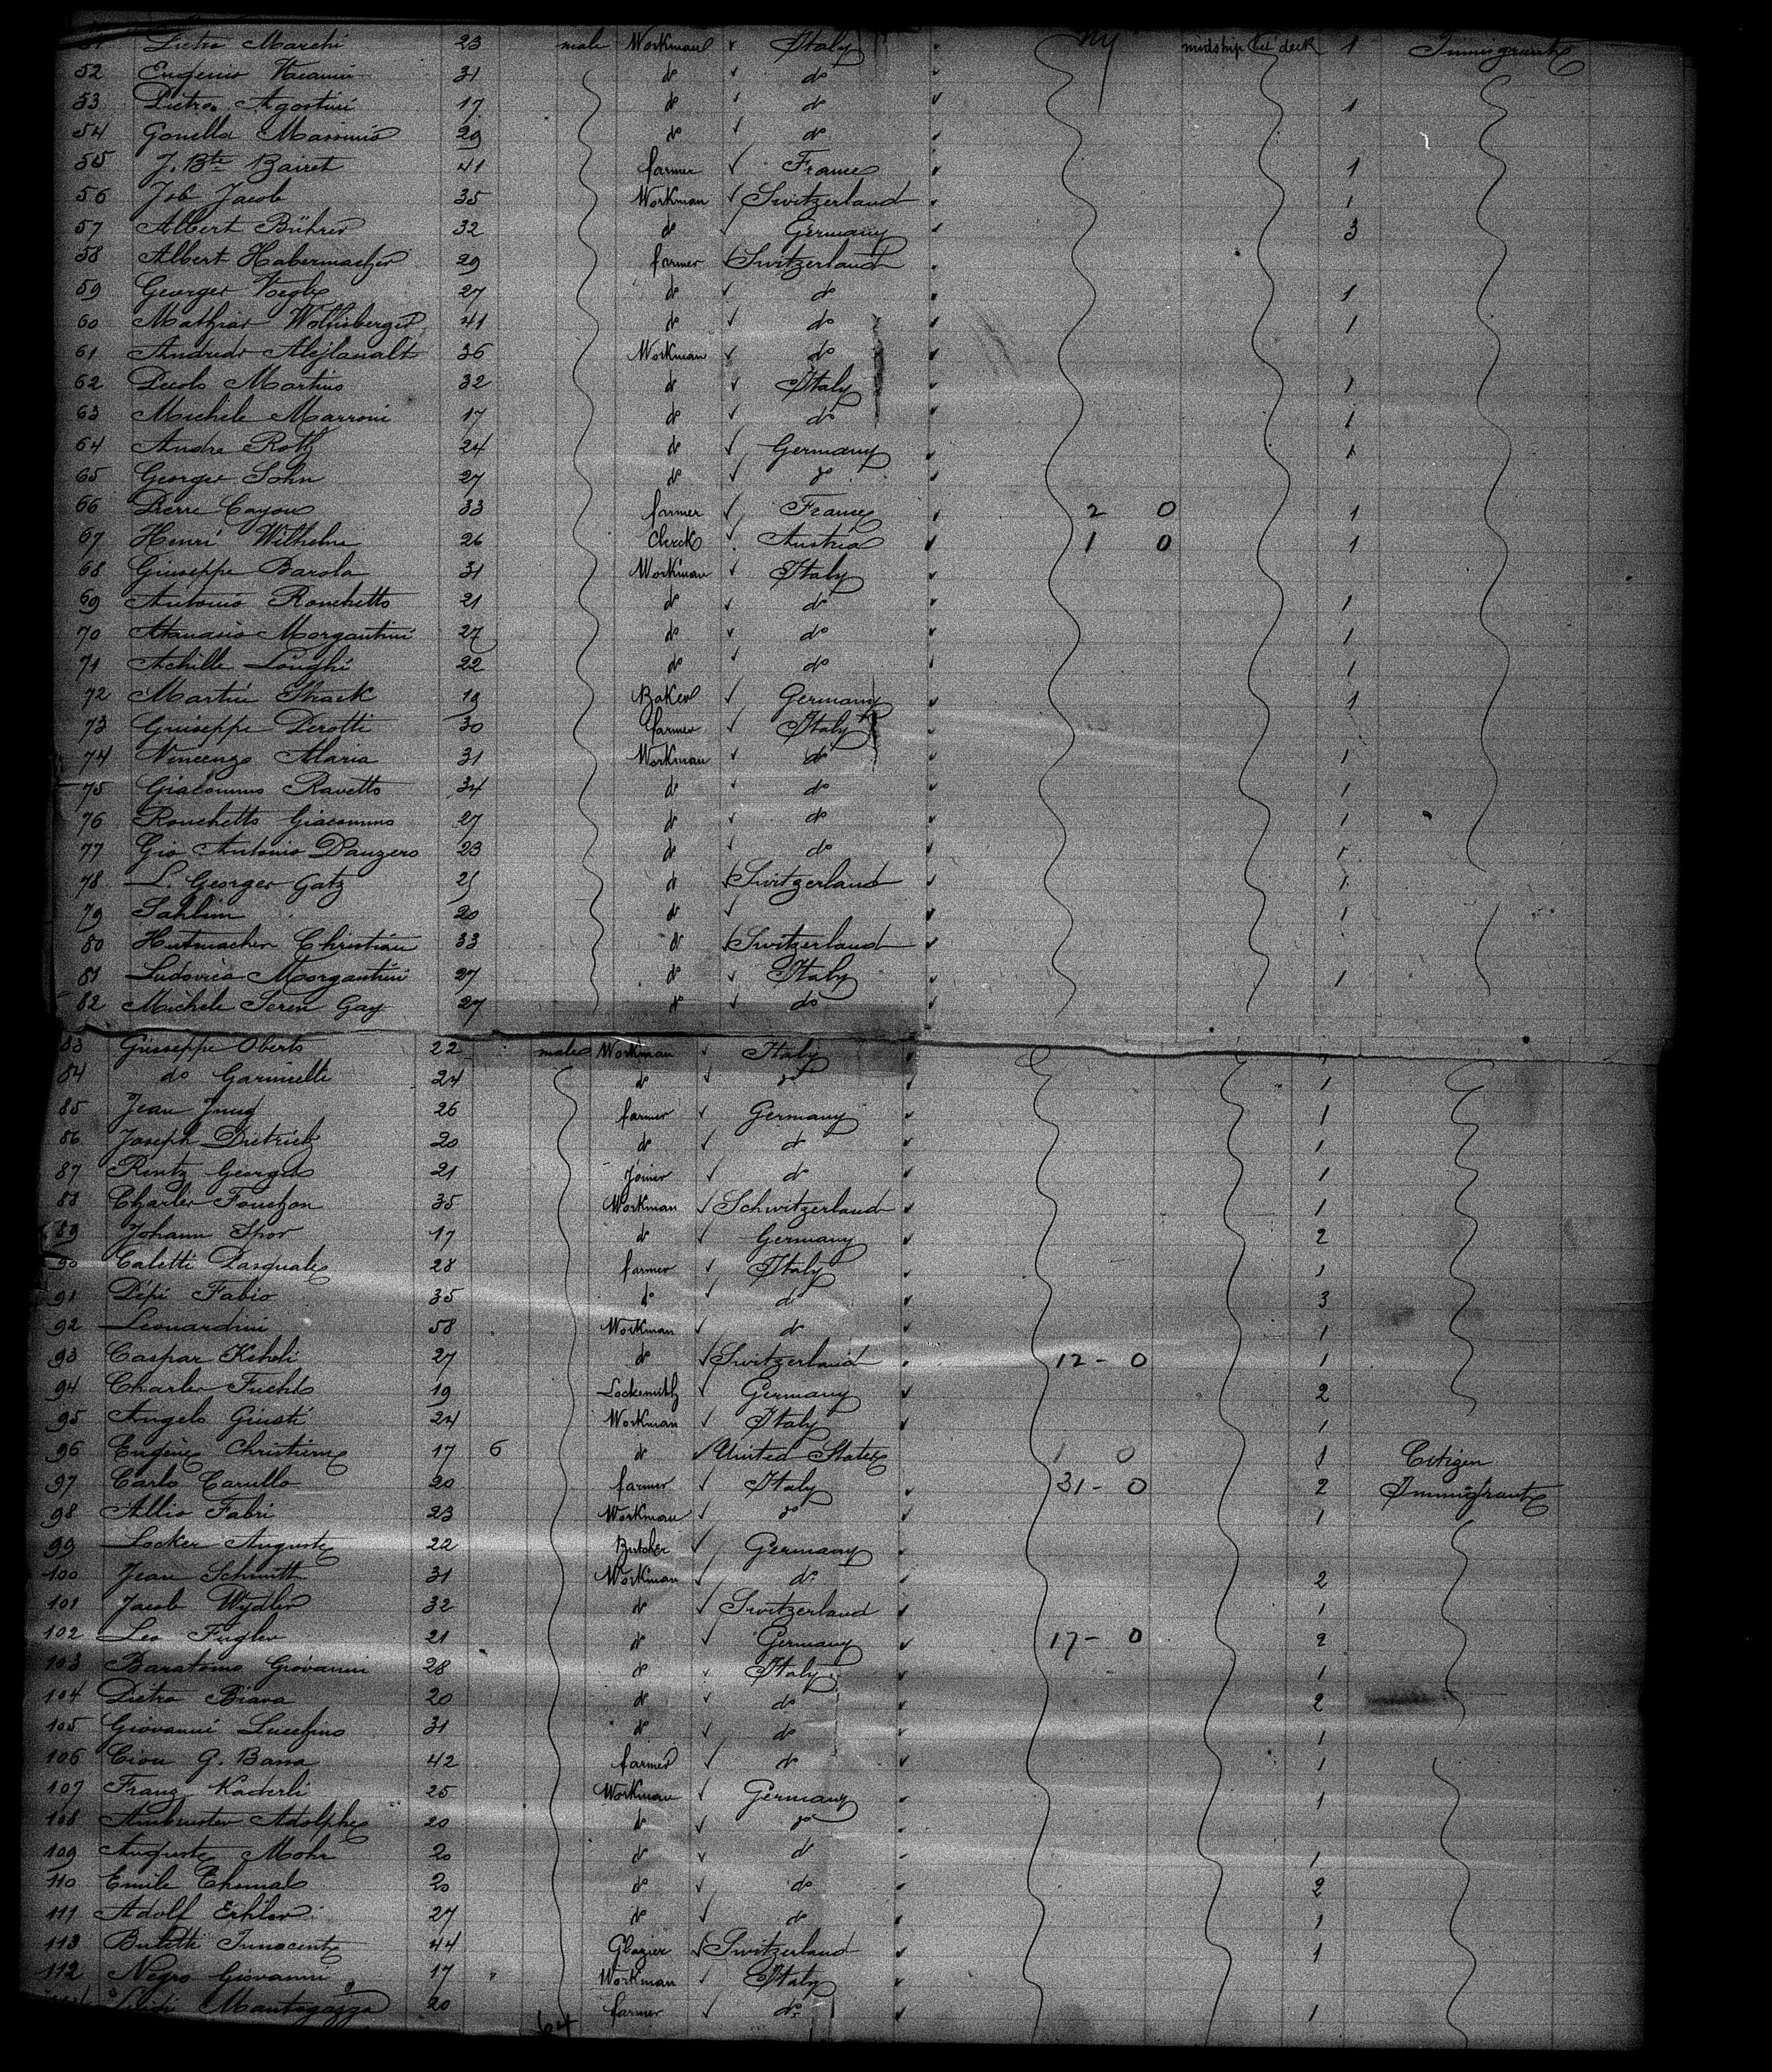 51 Pietro Marchi 23 male Workman Italy NY midship bet deck 1 Immigrant
52 Eugenio 31 do do
53 Pietro Agostini 17 do do 1
54 Gonella Massimio 29 do do
55 J. Bte Bairet 41 farmer France 1
56 Job Jacob 35 Workman Switzerland 1
57 Albert Bührer 32 do Germany 3
58 Albert Habermacher 29 farmer Switzerland
59 Georges Voegle 27 do do 1
60 Mathias Wolfisberger 41 do do 1
61 36 Workman do
62 Martino 32 do Italy 1
63 Michele Marroni 17 do do 1
64 Andre Roth 24 do Germany 1
65 George Sohn 27 do do
66 Pierre Cayou 33 farmer France 2 0 1
67 Henri Wilhelm 26 Clerck Austria 1 0 1
68 Giuseppe Barola 31 Workman Italy
69 Antonio Ronchetto 21 do do 1
70 Atanasio Morgantini 27 do do 1
71 Achille Longhi 22 do do 1
72 Martin Strack 19 Baker Germany 1
73 Guiseppe Perotti 30 farmer Italy
74 Vincenzo Maria 31 Workman do 1
75 Giacommo Ravetto 34 do do 1
76 Ronchetto Giacommo 27 do do 1
77 Gio Antonio Panzero 23 do do 1
78 L. Georges Gatz do Switzerland 1
79 Sahlim 20 do 1
80 Hutmacher Christian 33 do Switzerland
81 Ludovico Morgantini 27 do Italy 1
82 Michele Seren Gay 27 do do
83 Giuseppe Oberto 22 male Workman Italy 1
84 do Garinelli 24 do do 1
85 Jean Jung 26 farmer Germany 1
86 Joseph Dietrich 20 do do 1
87 Rentz Georges 21 Joiner do 1
88 Charles Fouchon 35 Workman Schwitzerland 1
89 Johann Spor 17 do Germany 2
90 Caletti Pasquale 28 farmer Italy 1
91 Pépi Fabio 35 do do 3
92 Leonardini 58 Workman do 1
93 Caspar Kehli 27 do Switzerland 12 - 0 1
94 Charles Fuchs 19 Locksmith Germany 2
95 Angelo Giusti 24 Workman Italy 1
96 Eugène Christienne 17 6 do United States 1 0 1 Citizen
97 Carlo Carullo 20 farmer Italy 31 - 0 2 Immigrant
98 Allio Fabri 23 Workman do 1
99 Locker Auguste 22 Butcher Germany
100 Jean Schmitt 31 Workman do 2
101 Jacob Wydler 32 do Switzerland 1
102 Leo Fugler 21 do Germany 17 - 0 2
103 Baratomo Giovanni 28 do Italy 1
104 Pietro Biava 20 do do 2
105 Giovanni Lucchino 31 do do 1
106 Ciou G. Bassa 42 farmer do 1
107 Franz Kaderli 25 Workman Germany 1
108 Ambruster Adolphe 20 do do
109 Auguste Mohr 20 do do 1
110 Emile Thomas 20 do do 2
111 Adolf Erhler 27 do do 1
113 Buletti Innocente 44 Glazier Switzerland 1
112 Negro Giovanni 17 Workman Italy
Mantegazza 20 farmer do 1
64